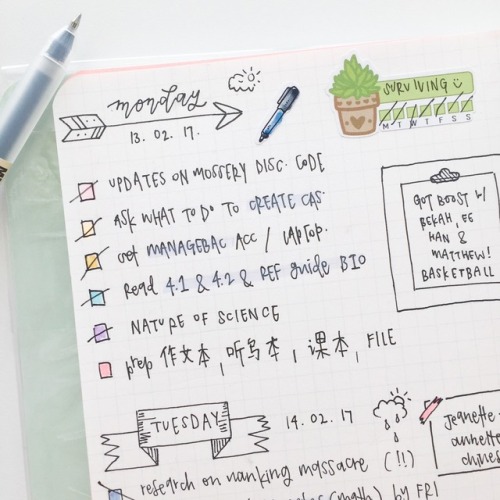 monday
13. 02. 17.
SURVIVING
M T W T F S S
UPDATES ON MOSSERY DISC. CODE
ASK WHAT TO DO TO CREATE CAS.
get MANAGEBAC ACC / LAPTOP.
Read 4.1 & 4.2 & REF guide BIO
NATURE OF SCIENCE
prep 作文本, 听写本, 课本, FILE
GOT BOOST W/
BEKAH, EE
HAN &
MATTHEW!
BASKETBALL
TUESDAY
14. 02. 17
research on nanking massacre (!!)
(math) by FRI
Jeanette
annette